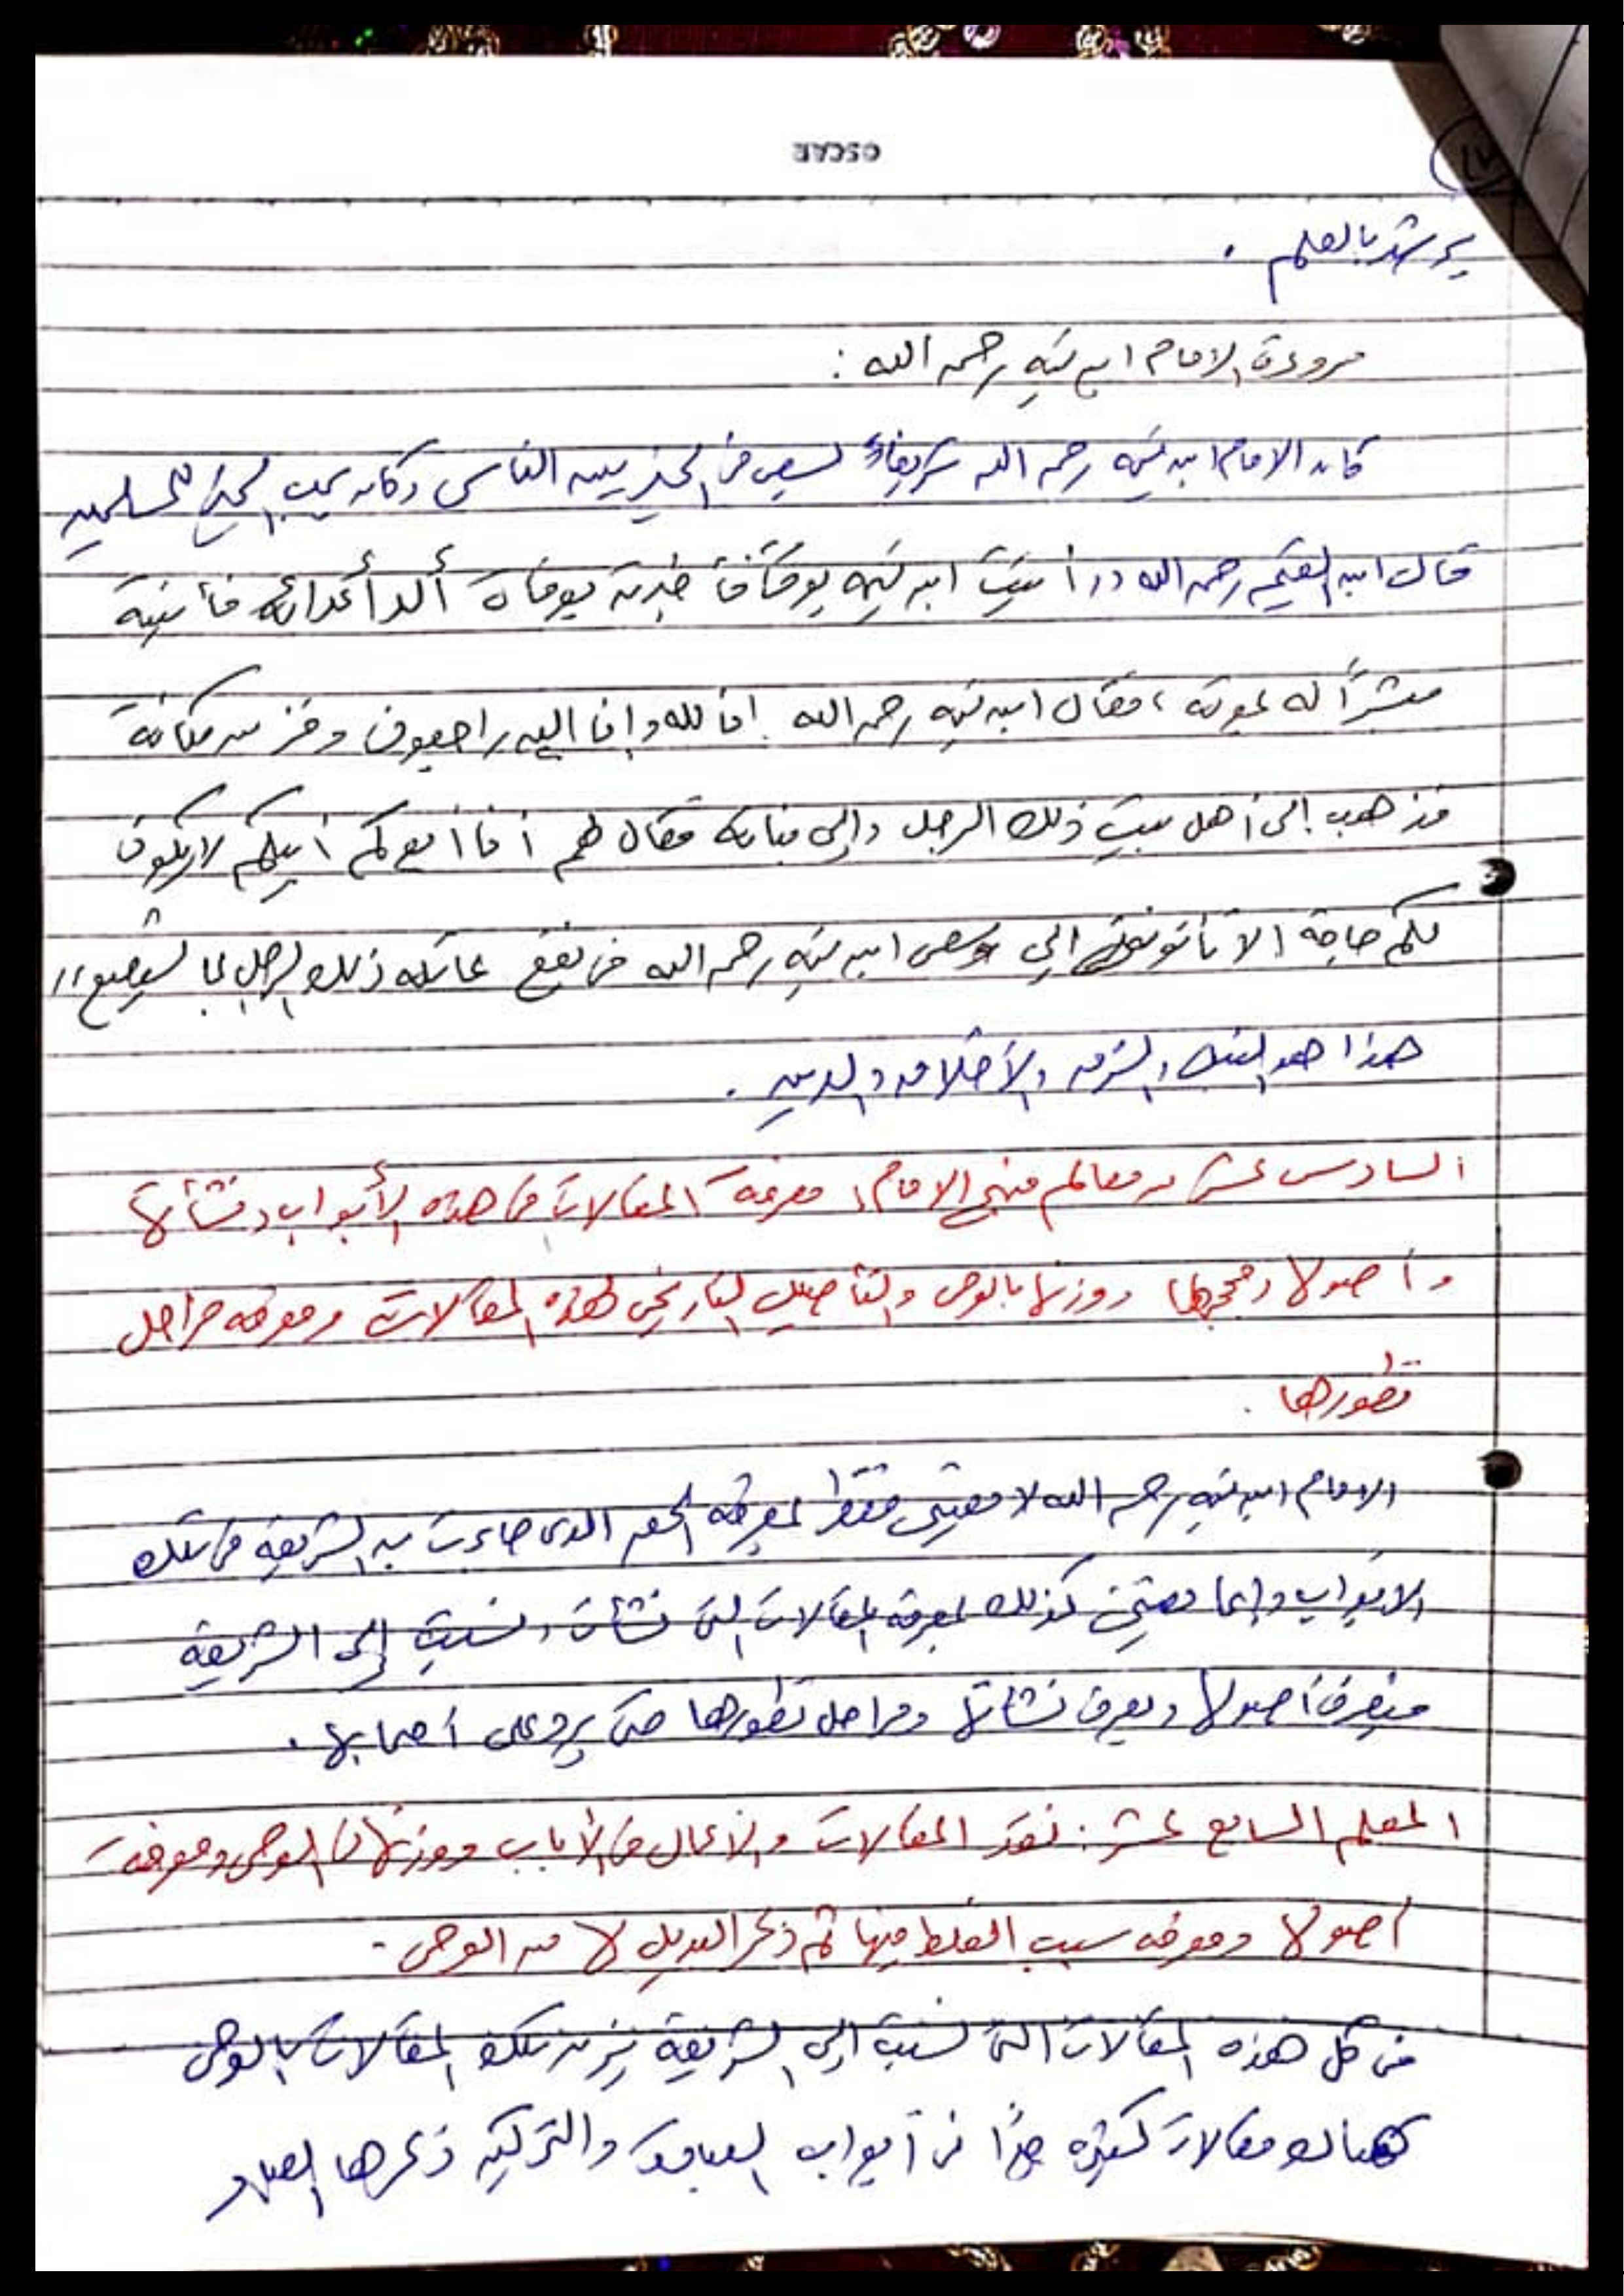 OSCAR
يرشد بالعلم .
مروءة الامام ابن تيمية رحمه الله :
كان الامام ابن تيمية رحمه الله شريفاً يسعى في الخير بين الناس وكان يحب الخير للمسلمين
قال ابن القيم رحمه الله (( أتيت ابن تيمية يوماً فأخبرته بوفاة ألد أعدائه فأتيته
مبشراً له بموته ، فقال ابن تيمية رحمه الله إنا لله وإنا اليه راجعون وفز من مكانه
فذهب إلى أهل بيت ذلك الرجل وإلى فقال لهم أنا أبيكم لا يكون
لكم حاجة الا تأتونني إلي وسعى ابن تيمية رحمه الله في نفع عائلة ذلك الرجل بما يستطيع ))
هذا هو النبل والشرف والأخلاق والدين .
السادس عشر من معالم منهج الامام : معرفة المقالات في هذه الأبواب ونشأتها
وأصولها وحججها ووزنها بالوحي والتأصيل التاريخي لهذه المقالات ومعرفة مراحل
تطورها .
الامام ابن تيمية رحمه الله لا يعتني فقط بمعرفة الحق الذي جاءت به الشريعة في تلك
الابواب وإنما يعتني كذلك بمعرفة المقالات التي نشأت ونسبت إلى الشريعة
فيعرف أصولها ويعرف نشأتها ومراحل تطورها حتى يرد على أصحابها .
المعلم السابع عشر : نقد المقالات والأعمال في الأبواب ووزنها في الوحي ومعرفة
أصولها ومعرفة سبب الغلط فيها ثم ذكر البديل لها من الوحي .
في كل هذه المقالات التي نسبت إلى الشريعة يزن تلك المقالات بالوحي
هناك مقالات كثيرة جداً في أبواب العبادة والتزكية ذكرها